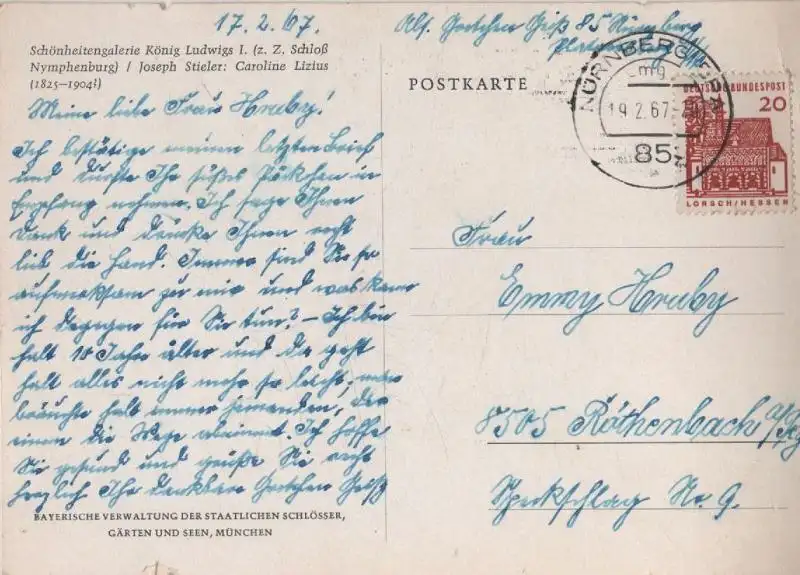 17.2.67.
Schönheitengalerie König Ludwigs I. (z. Z. Schloß
Nymphenburg) / Joseph Stieler: Caroline Lizius
(1825–1904?)
Meine liebe Frau Hruby!
Ich bestätige meinen letzten Brief
und durfte Ihr süßes Päckchen in
Empfang nehmen. Ich sage Ihnen
Dank und drücke Ihnen recht
lieb die Hand. Immer sind Sie so
aufmerksam zu mir und was kann
ich dagegen für Sie tun? – Ich bin
halt 10 Jahre älter und da geht
halt alles nicht mehr so leicht, man
bräuchte halt immer jemanden, der
einem die Wege abnimmt. Ich hoffe
Sie gesund und grüße Sie recht
herzlich Ihr dankbare Gretchen Geiß
BAYERISCHE VERWALTUNG DER STAATLICHEN SCHLÖSSER,
GÄRTEN UND SEEN, MÜNCHEN
Abs. Gretchen Geiß 85 Nürnberg
POSTKARTE
NÜRNBERG
19.2.67
85
DEUTSCHE BUNDESPOST
20
LORSCH/HESSEN
Frau
Emmy Hruby
8505 Röthenbach
Speckschlag Nr. 9.